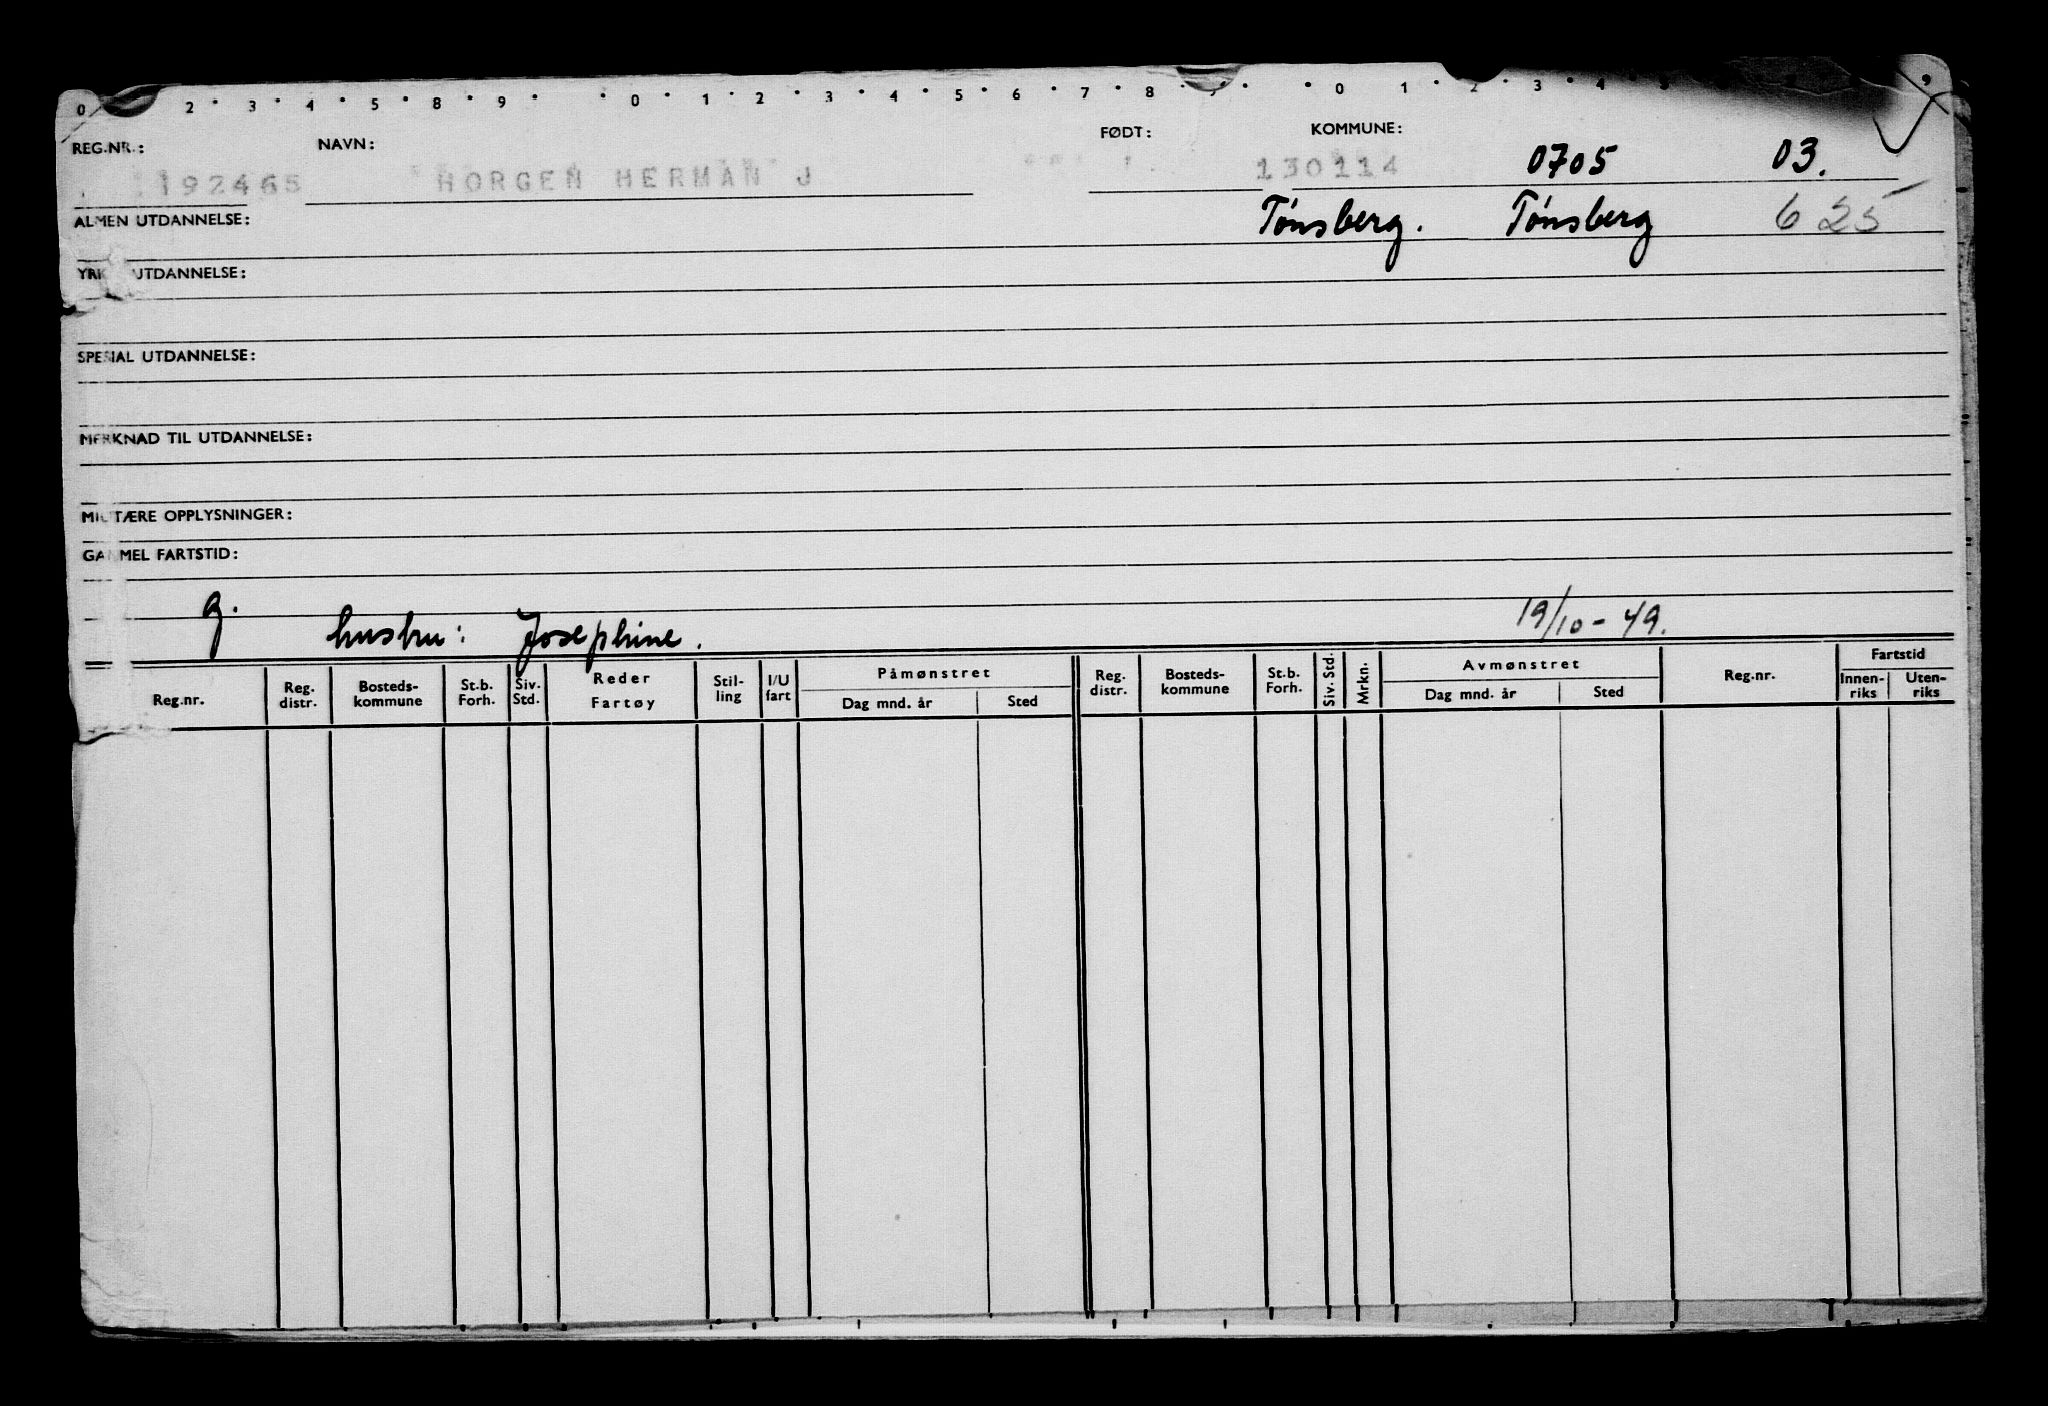 0 2 3 4 5 8 9 0 1 2 3 4 5 6 7 8 0 1 2 3 4 5 9
REG.NR.: NAVN: FØDT: KOMMUNE:
192465 HORGEN HERMAN J 130114 0705 03.
ALMEN UTDANNELSE: Tönsberg. Tönsberg 625
YRK UTDANNELSE:
SPESIAL UTDANNELSE:
MERKNAD TIL UTDANNELSE:
MILITÆRE OPPLYSNINGER:
GAMMEL FARTSTID:
g. hustru: Josephine. 19/10-49.
Reg.nr. Reg. distr. Bosteds-kommune St.b. Forh. Siv. Std. Reder Fartøy Stil-ling I/U fart Påmønstret Dag mnd. år Sted Reg. distr. Bosteds-kommune St.b. Forh. Siv. Std. Mrkn. Avmønstret Dag mnd. år Sted Reg.nr. Fartstid Innen-riks Uten-riks